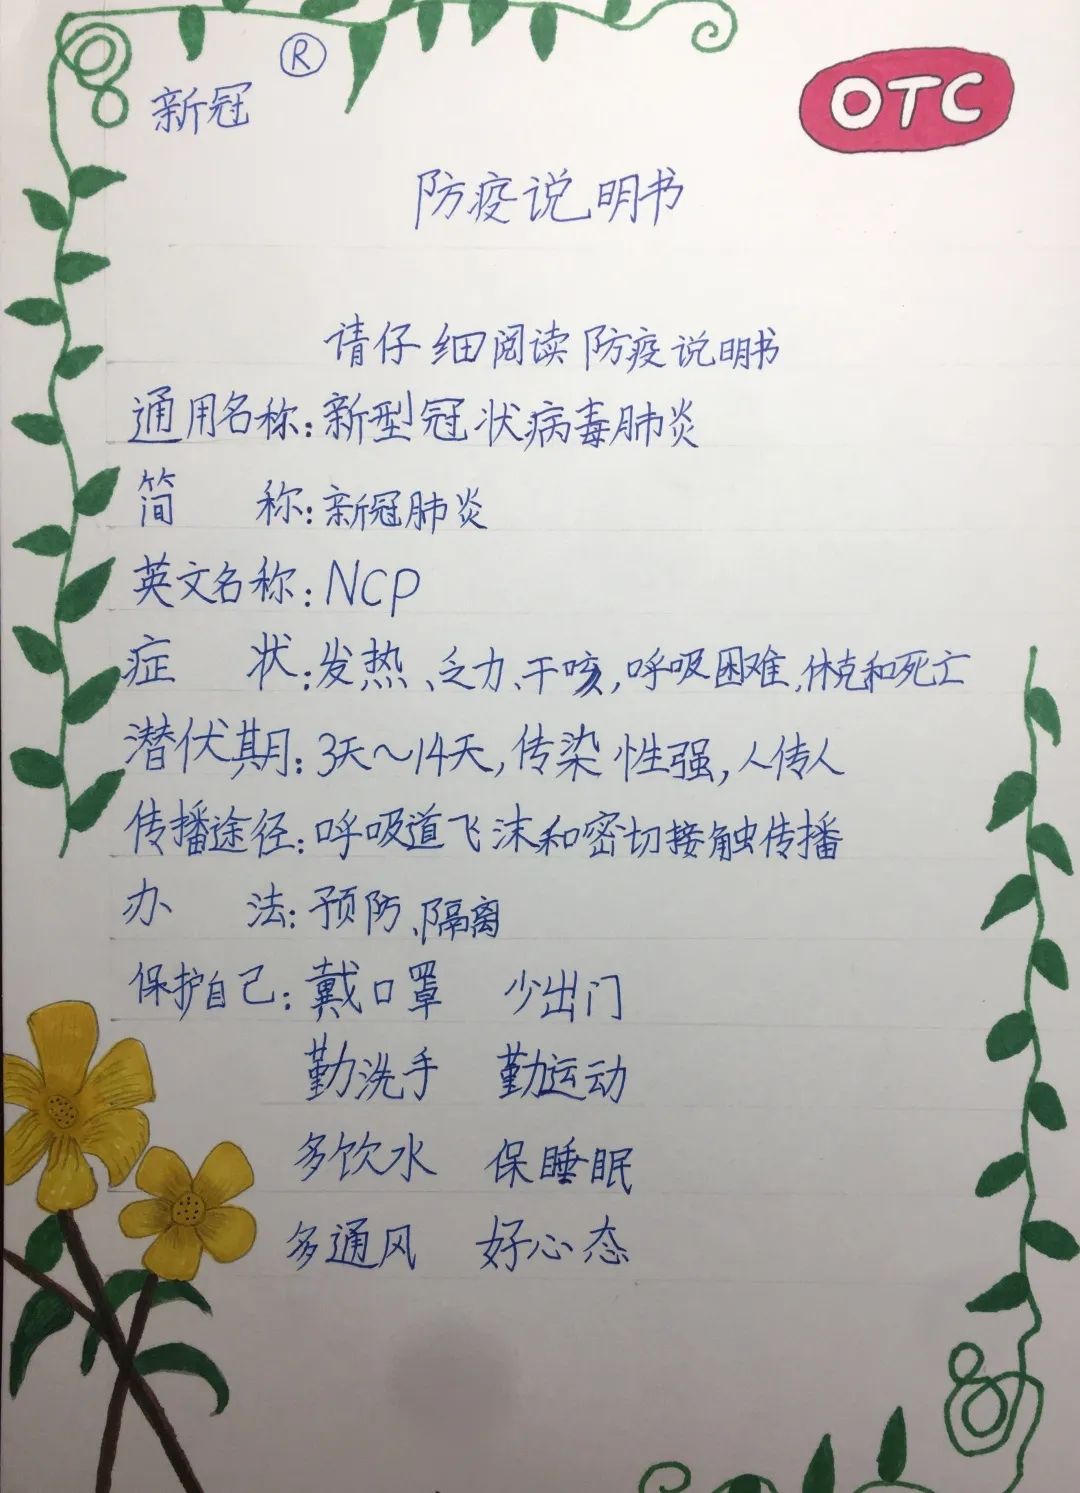 新冠 ®
OTC
防疫说明书
请仔细阅读防疫说明书
通用名称:新型冠状病毒肺炎
简 称:新冠肺炎
英文名称:NCP
症 状:发热、乏力、干咳,呼吸困难,休克和死亡
潜伏期:3天~14天,传染性强,人传人
传播途径:呼吸道飞沫和密切接触传播
办 法:预防、隔离
保护自己:戴口罩 少出门
勤洗手 勤运动
多饮水 保睡眠
多通风 好心态